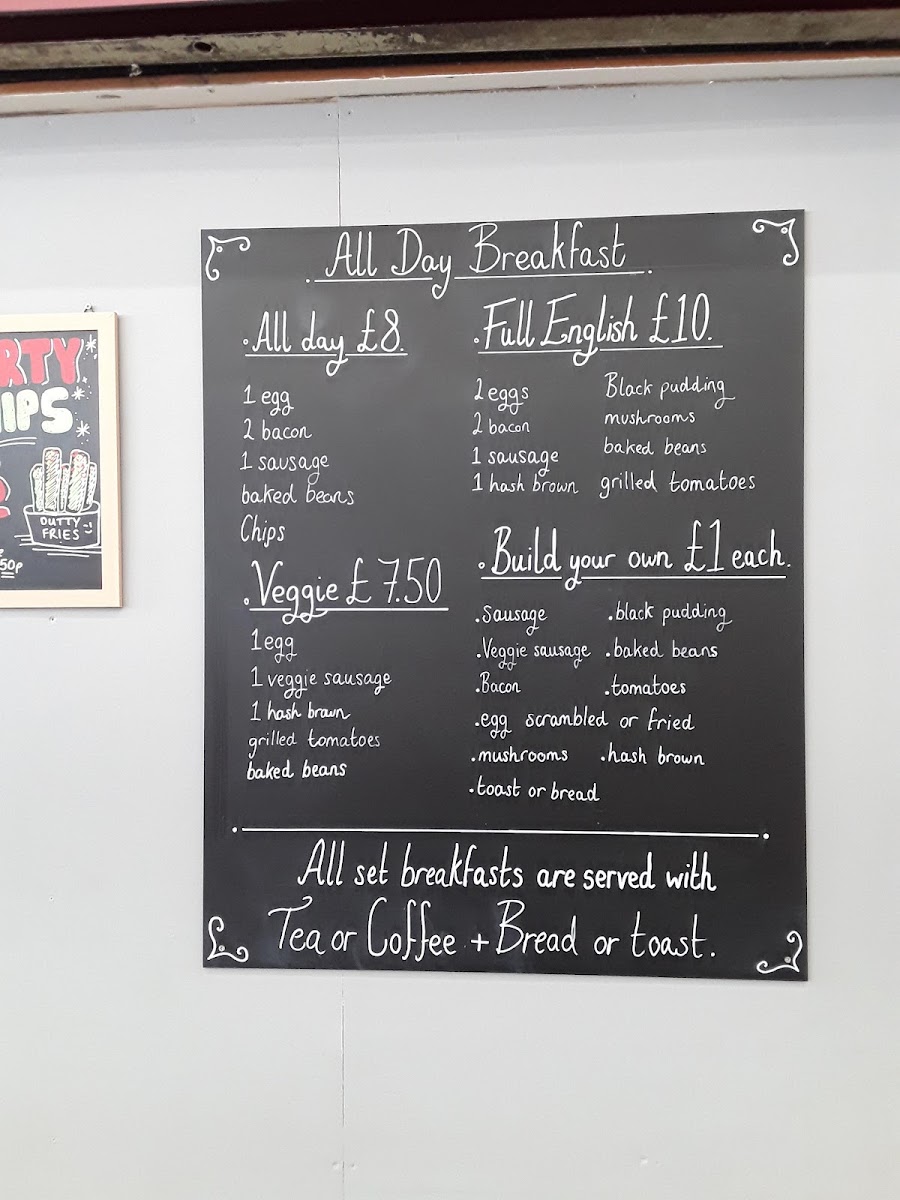 RTY
IPS
OUTTY
FRIES
50p
All Day Breakfast
All day £8.
1 egg
2 bacon
1 sausage
baked beans
Chips
Veggie £7.50
1 egg
1 veggie sausage
1 hash brown
grilled tomatoes
baked beans
Full English £10.
2 eggs
2 bacon
1 sausage
1 hash brown
Black pudding
mushrooms
baked beans
grilled tomatoes
Build your own £1 each.
.Sausage .black pudding
.Veggie sausage .baked beans
.Bacon .tomatoes
.egg scrambled or fried
.mushrooms .hash brown
.toast or bread
All set breakfasts are served with
Tea or Coffee + Bread or toast.